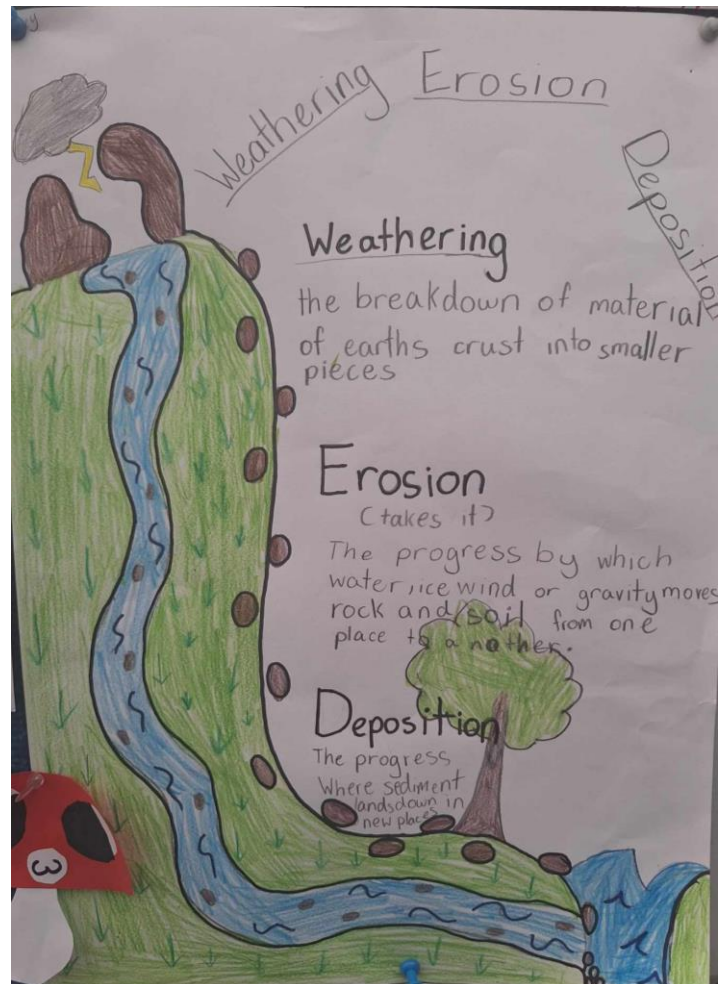 Weathering
Erosion
Deposition
Weathering
the breakdown of material
of earths crust into smaller
pieces
Erosion
(takes it)
The progress by which
water, ice wind or gravity moves
rock and/soil from one
place to another.
Deposition
The progress
Where sediment
landsdown in
new places
3